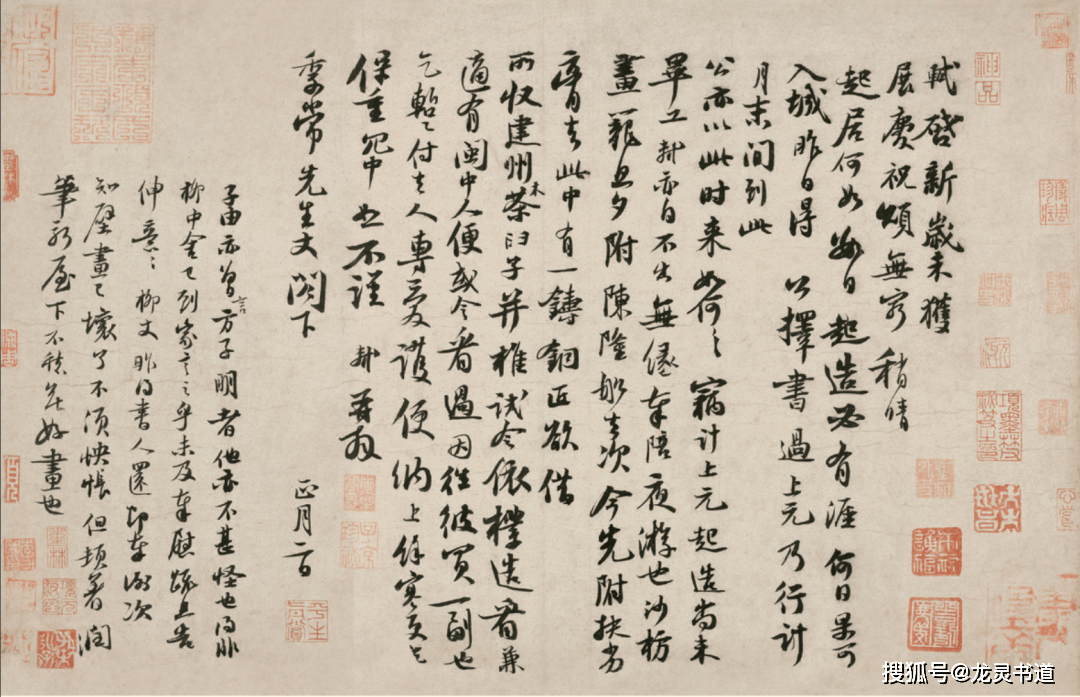 軾啓新歲未獲
展慶祝頌無窮稍晴
起居何如數日起造必有涯何日果可
入城昨日得公擇書過上元乃行計
月末間到此
公亦以此時來如何々竊計上元起造尚未
畢工軾亦自不出無緣奉陪夜游也沙枋
畫籠旦夕附陳隆船去次今先附扶劣
膏去此中有一鑄銅匠欲借
所收建州木茶臼子并椎試令依樣造看兼
適有閩中人便或令看過因往彼買一副也
乞暫付去人專愛護便納上餘寒更乞
保重冗中恕不謹軾再拜
季常先生丈閣下
正月二日
子由亦曾言方子明者他亦不甚怪也得非
柳中舍已到家言之乎未及奉慰疏且告
伸意々柳丈昨得書人還即奉謝次
知壁畫已壞了不須怏悵但頓著潤
筆新屋下不愁無好畫也
搜狐号@龙灵书道